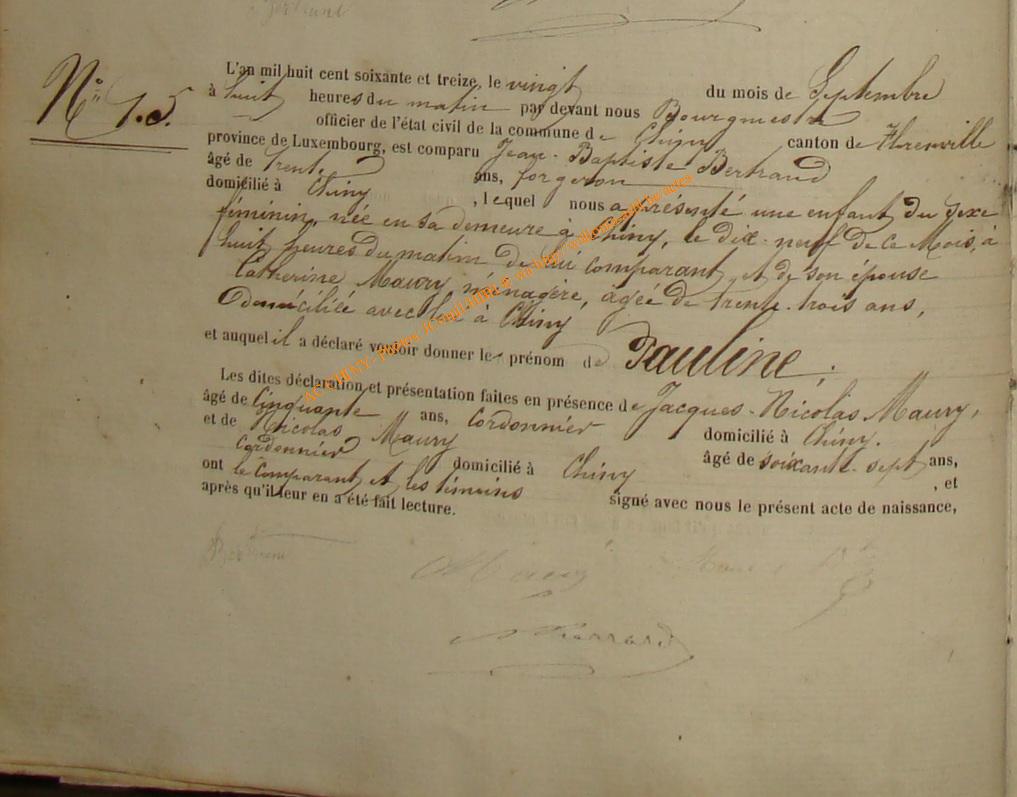 N° 15.
L'an mil huit cent soixante et treize, le vingt du mois de Septembre
à huit heures du matin par devant nous Bourgmestre
officier de l'état civil de la commune de Chiny canton de Florenville
province de Luxembourg, est comparu Jean-Baptiste Bertrand
âgé de trente ans, forgeron
domicilié à Chiny, lequel nous a présenté une enfant du sexe
féminin, née en sa demeure à Chiny, le dix-neuf de ce Mois, à
huit heures du matin de lui comparant et de son épouse
Catherine Maury, ménagère, âgée de trente-trois ans,
domiciliée avec lui à Chiny
et auquel il a déclaré vouloir donner le prénom de Pauline.
Les dites déclaration et présentation faites en présence de Jacques-Nicolas Maury,
âgé de Cinquante ans, Cordonnier domicilié à Chiny.
et de Nicolas Maury âgé de soixante-sept ans,
Cordonnier domicilié à Chiny, et
ont le Comparant et les témoins signé avec nous le présent acte de naissance,
après qu'il leur en a été fait lecture.
Bertrand
Maury
Pierrard